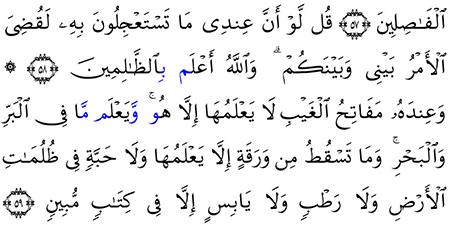 ٱلْفَـٰصِلِينَ ﴿٥٧﴾ قُل لَّوْ أَنَّ عِندِى مَا تَسْتَعْجِلُونَ بِهِۦ لَقُضِىَ
ٱلْأَمْرُ بَيْنِى وَبَيْنَكُمْ ۗ وَٱللَّهُ أَعْلَم بِٱلظَّـٰلِمِينَ ﴿٥٨﴾ ۞
وَعِندَهُۥ مَفَاتِحُ ٱلْغَيْبِ لَا يَعْلَمُهَا إِلَّا هُوَ ۚ وَّيَعْلَم مَّا فِى ٱلْبَرِّ
وَٱلْبَحْرِ ۚ وَمَا تَسْقُطُ مِن وَرَقَةٍ إِلَّا يَعْلَمُهَا وَلَا حَبَّةٍ فِى ظُلُمَـٰتِ
ٱلْأَرْضِ وَلَا رَطْبٍ وَلَا يَابِسٍ إِلَّا فِى كِتَـٰبٍ مُّبِينٍ ﴿٥٩﴾